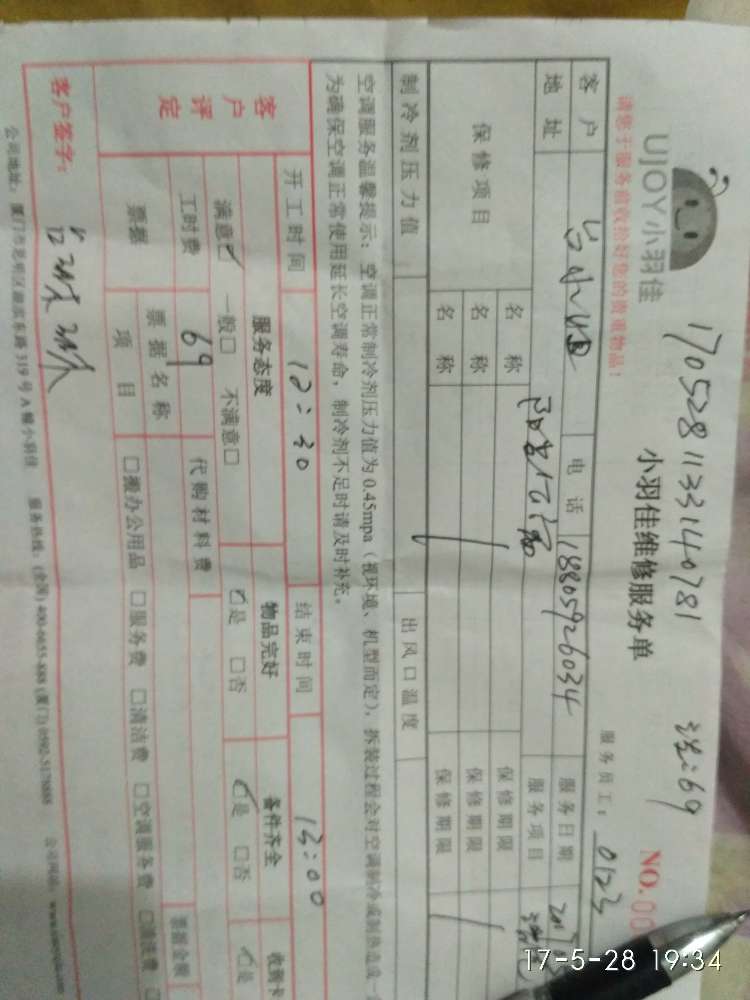 UJOY小羽佳
1705281133140781
洗:69
小羽佳维修服务单
NO.00
请您于服务前收拾好您的贵重物品!
服务员工: 0123
客户
电话 18805926034
服务日期
地址
服务项目
保修项目
名称
保修期限
名称
保修期限
名称
保修期限
制冷剂压力值
出风口温度
空调服务温馨提示:空调正常制冷剂压力值为0.45mpa(视环境、机型而定),拆装过程会对空调制冷或制热造成一
为确保空调正常使用延长空调寿命,制冷剂不足时请及时补充。
开工时间 12:30
结束时间 13:00
客户评定
服务态度
物品完好
备件齐全
收到卡
满意☑ 一般□ 不满意□
☑是 □否
☑是 □否
☑是
工时费 69
代购材料费
票据
票据名称
票据金额
项目
□搬办公用品 □服务费 □清洁费 □空调服务费 □清洗费
客户签字:
公司地址:厦门市思明区湖滨东路319号A幢小羽佳
服务热线:(全国)400-6655-888(厦门)0592-5178888
公司网站:
17-5-28 19:34